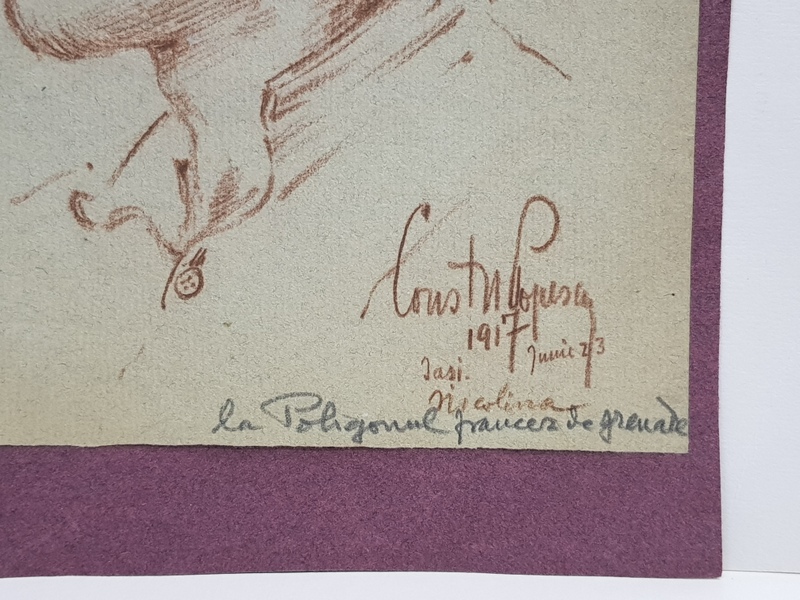 Const. N. Popescu
1917 Junie 23
Iasi.
la Poligonul francez de grenade